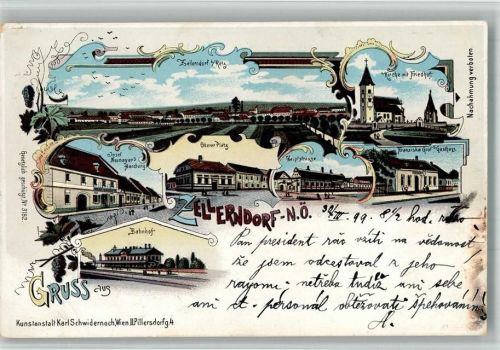 Zellerndorf b/Retz
Kirche mit Friedhof
Nachahmung verboten
Josef
Handlung
Oberer Platz
Hauptstrasse
Franziska Graf Gasthaus
Gesetzlich geschützt Nr 3192.
ZELLERNDORF-N.Ö.
Bahnhof
GRUSS aus
99. 8 1/2 hod. ráno
Pan president ráčí vzíti na vědomost
že jsem odcestoval z jeho
rayonu. netřeba tudíž ani sebe
ani ct. personal obtěžovati špehováním
A.
Kunstanstalt Karl Schwidernoch, Wien II. Pillersdorfg. 4